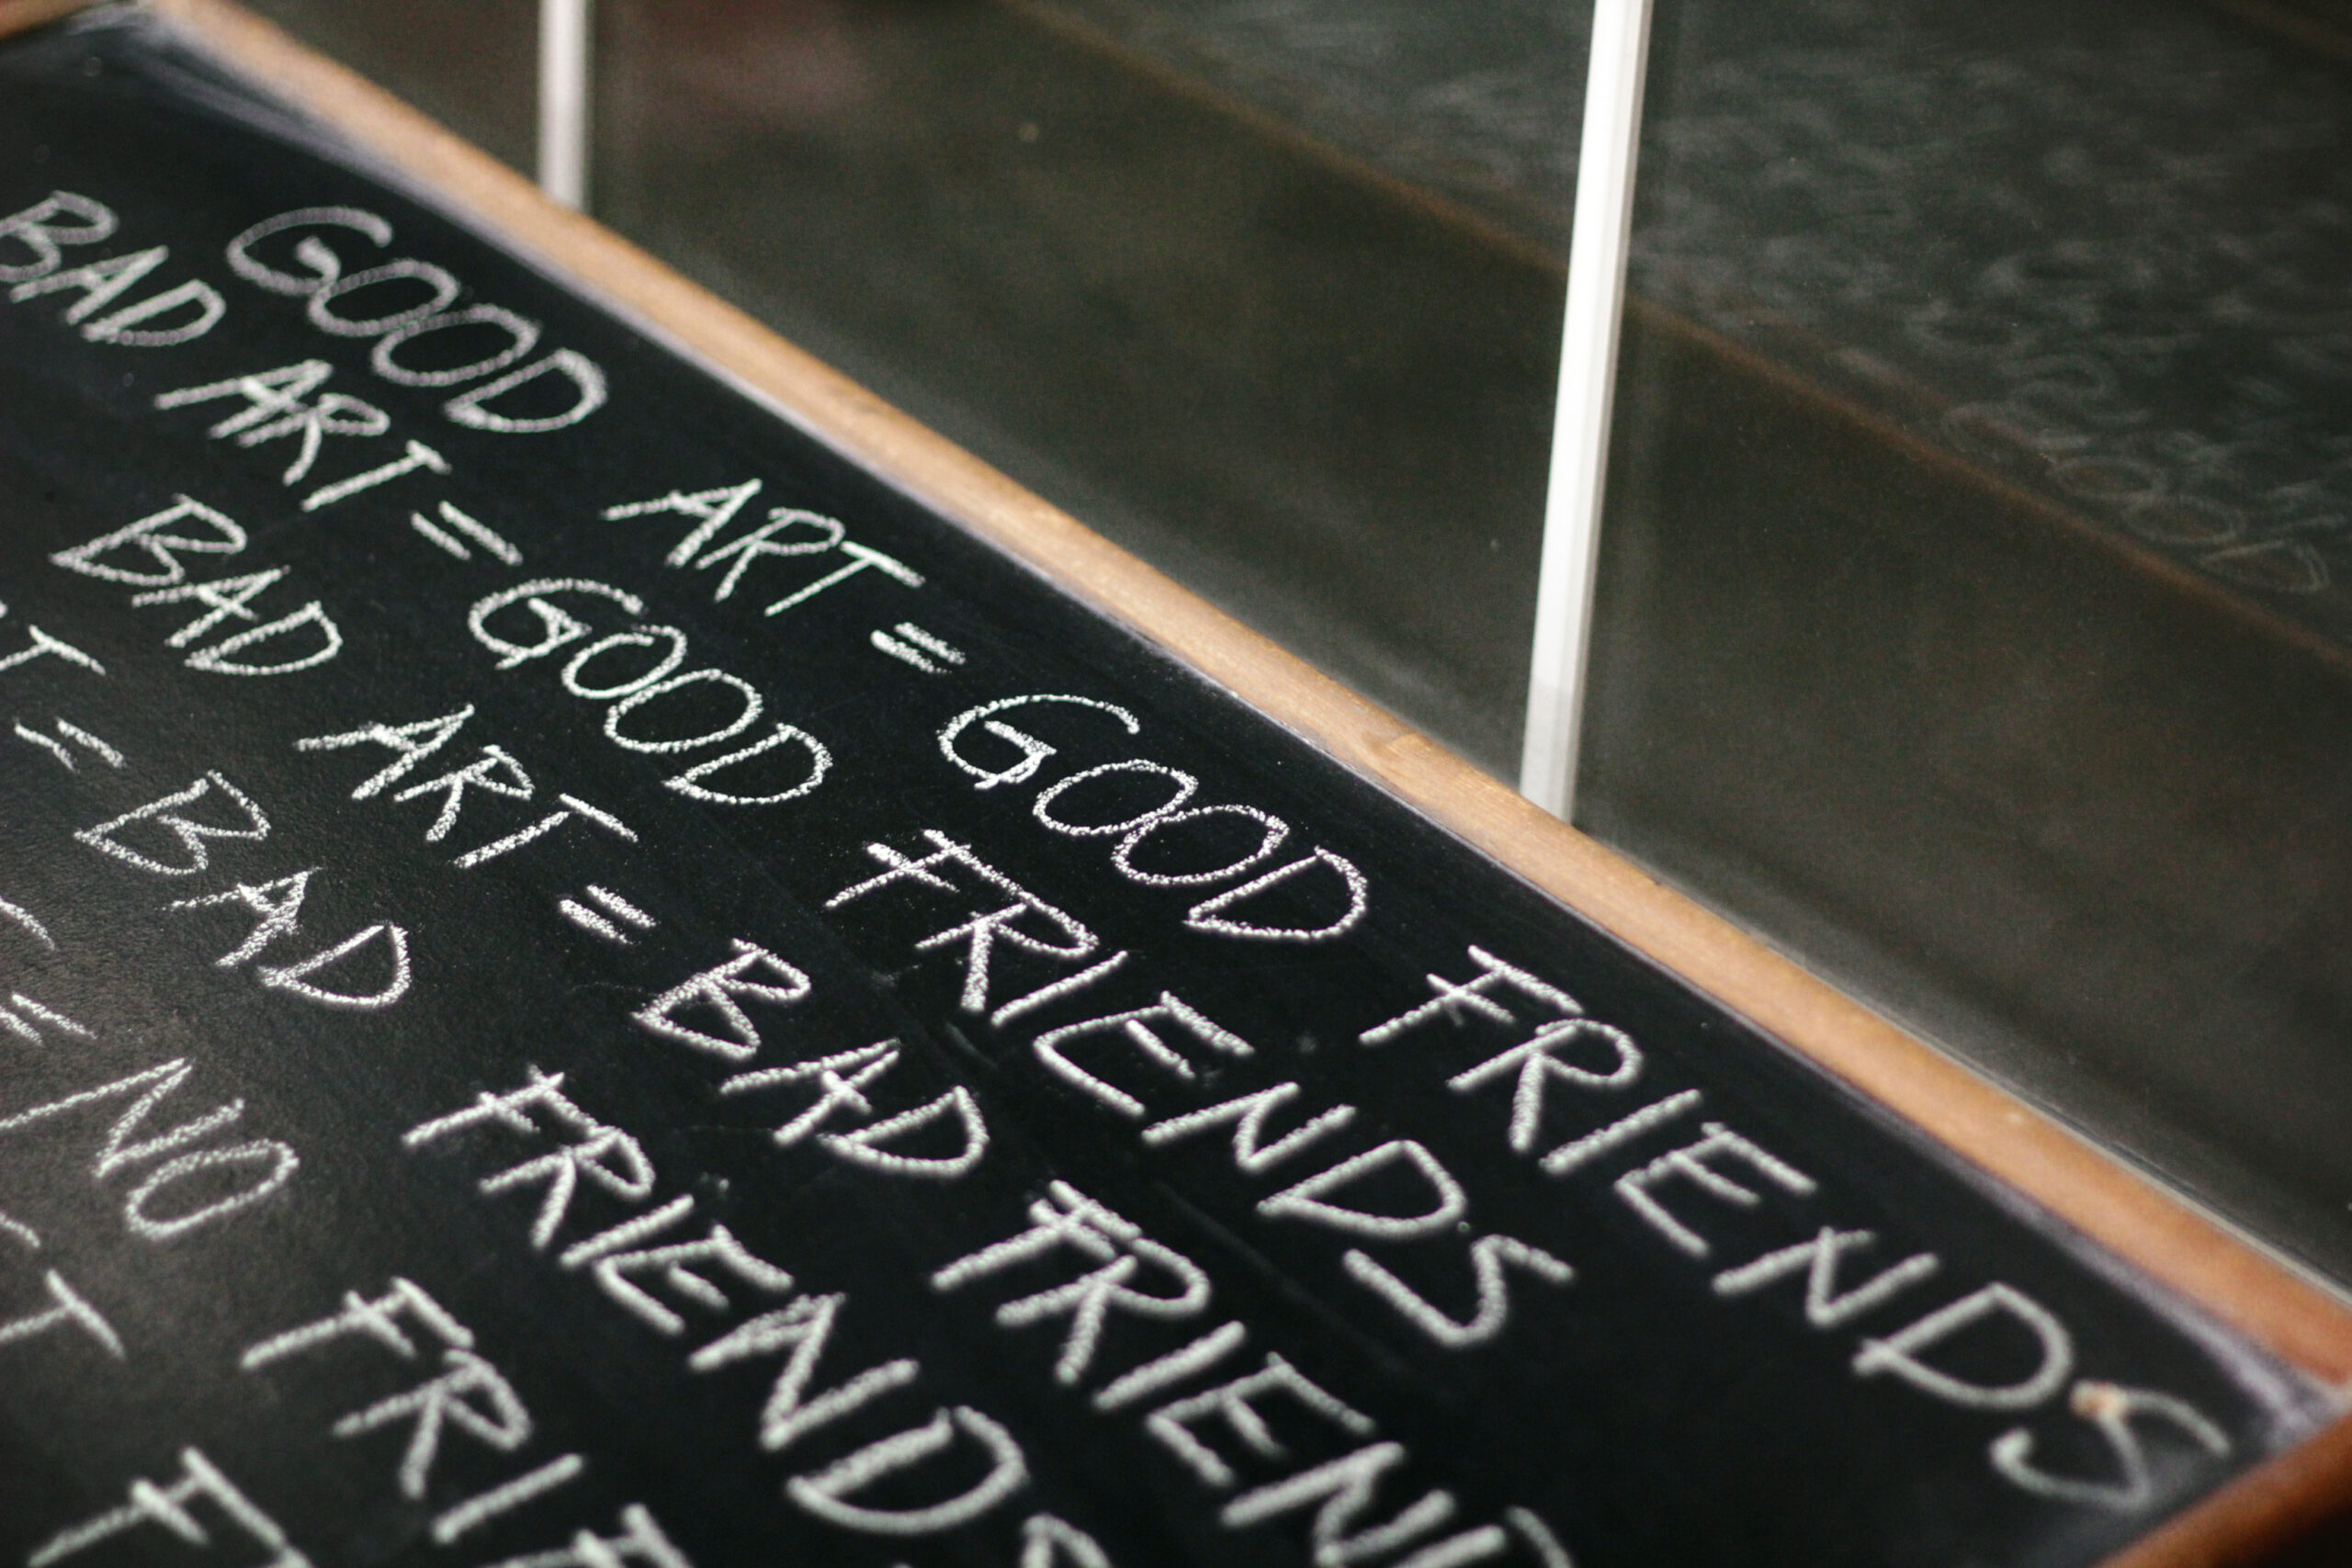 GOOD ART = GOOD FRIENDS
BAD ART = GOOD FRIENDS
BAD ART = BAD FRIEND
T = BAD FRIENDS
= NO FRIE
T F